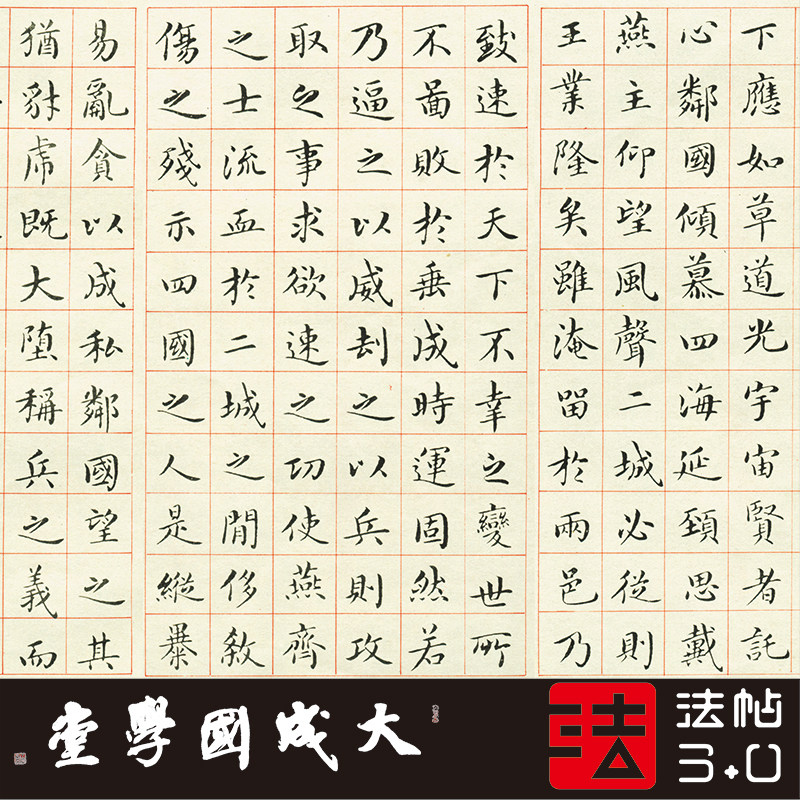 下應如草道光宇宙賢者託
心鄰國傾慕四海延頸思戴
燕主仰望風聲二城必從則
王業隆矣雖淹留於兩邑乃
致速於天下不幸之變世所
不圖敗於垂成時運固然若
乃逼之以威劫之以兵則攻
取之事求欲速之功使燕齊
之士流血於二城之間侈殺
傷之殘示四國之人是縱暴
易亂貪以成私鄰國望之其
猶豺虎既大墮稱兵之義而
大成國學堂
法
法帖
3.0